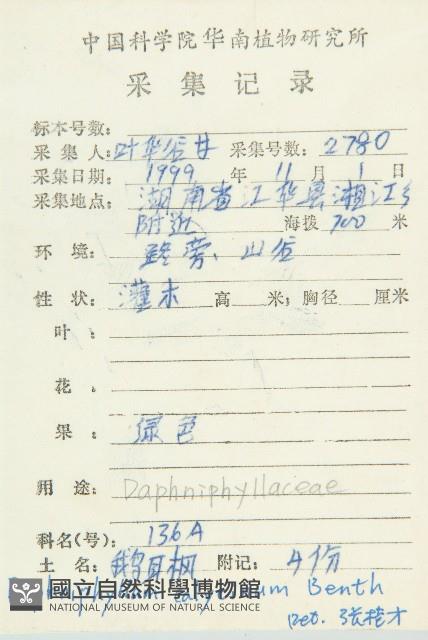 中国科学院华南植物研究所
采集记录
标本号数:
采集人:叶华谷 采集号数:2780
采集日期: 1999 年 11 月 1 日
采集地点:湖南省江华县湘江乡
附近 海拨 700 米
环境: 路旁、山谷
性状:灌木 高 米;胸径 厘米
叶:
花.
果: 绿色
用途: Daphniphyllaceae
科名(号): 136A
土名: 鹅耳枫 附记: 4份
Benth
國立自然科學博物館
NATIONAL MUSEUM OF NATURAL SCIENCE
Det. 张桂才